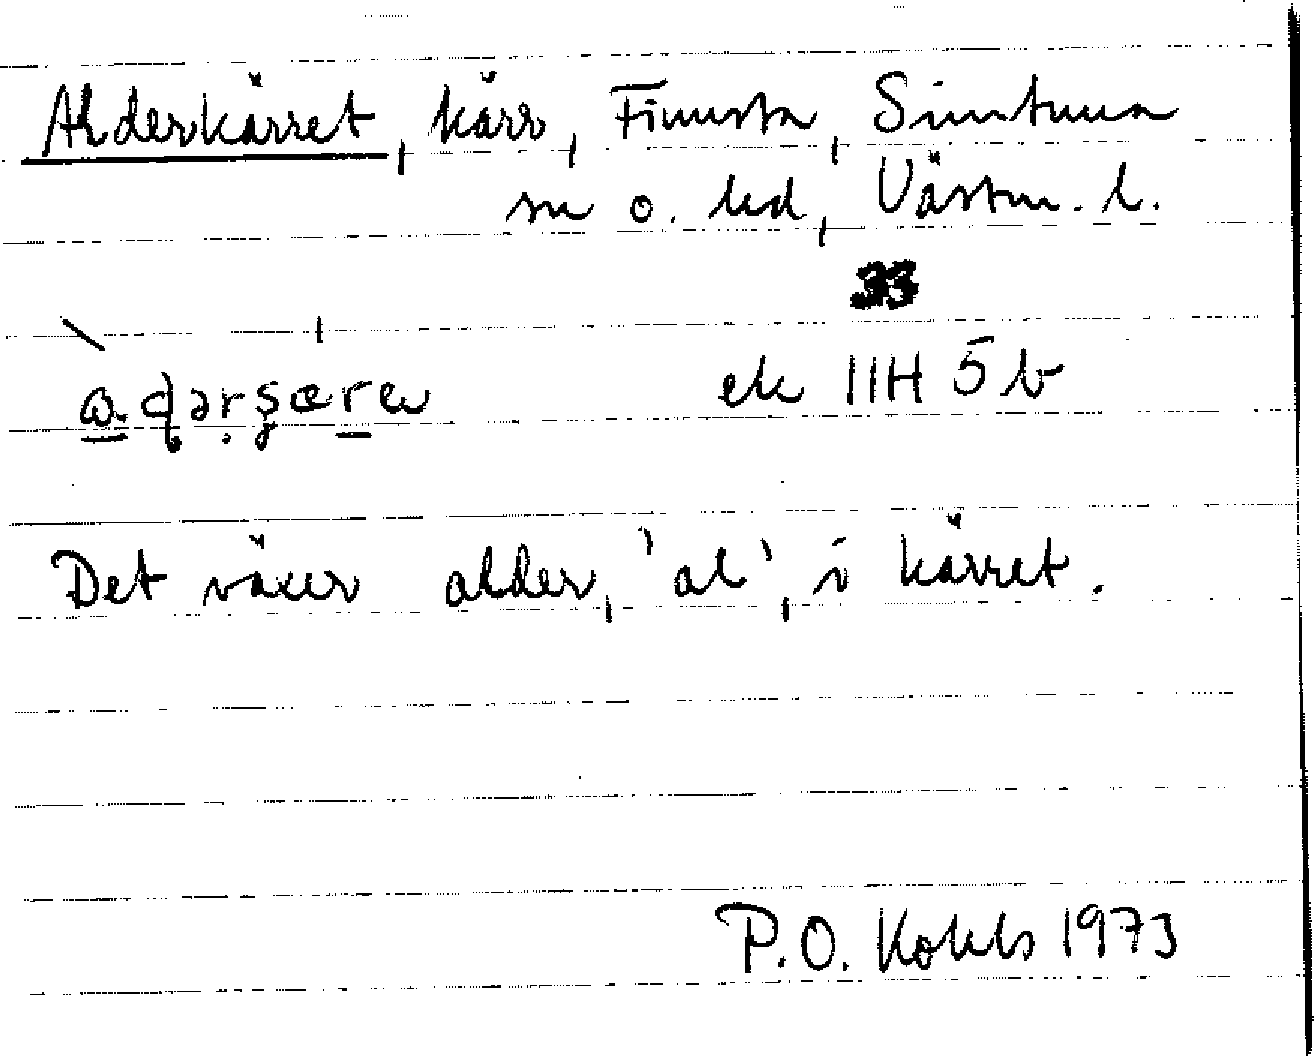 Alderkärret, kärr, Finnsta, Simtuna
sn o. hd, Västm. l.
33
ek 11H 5b
Det växer alder, 'al', i kärret.
P.O. 1973